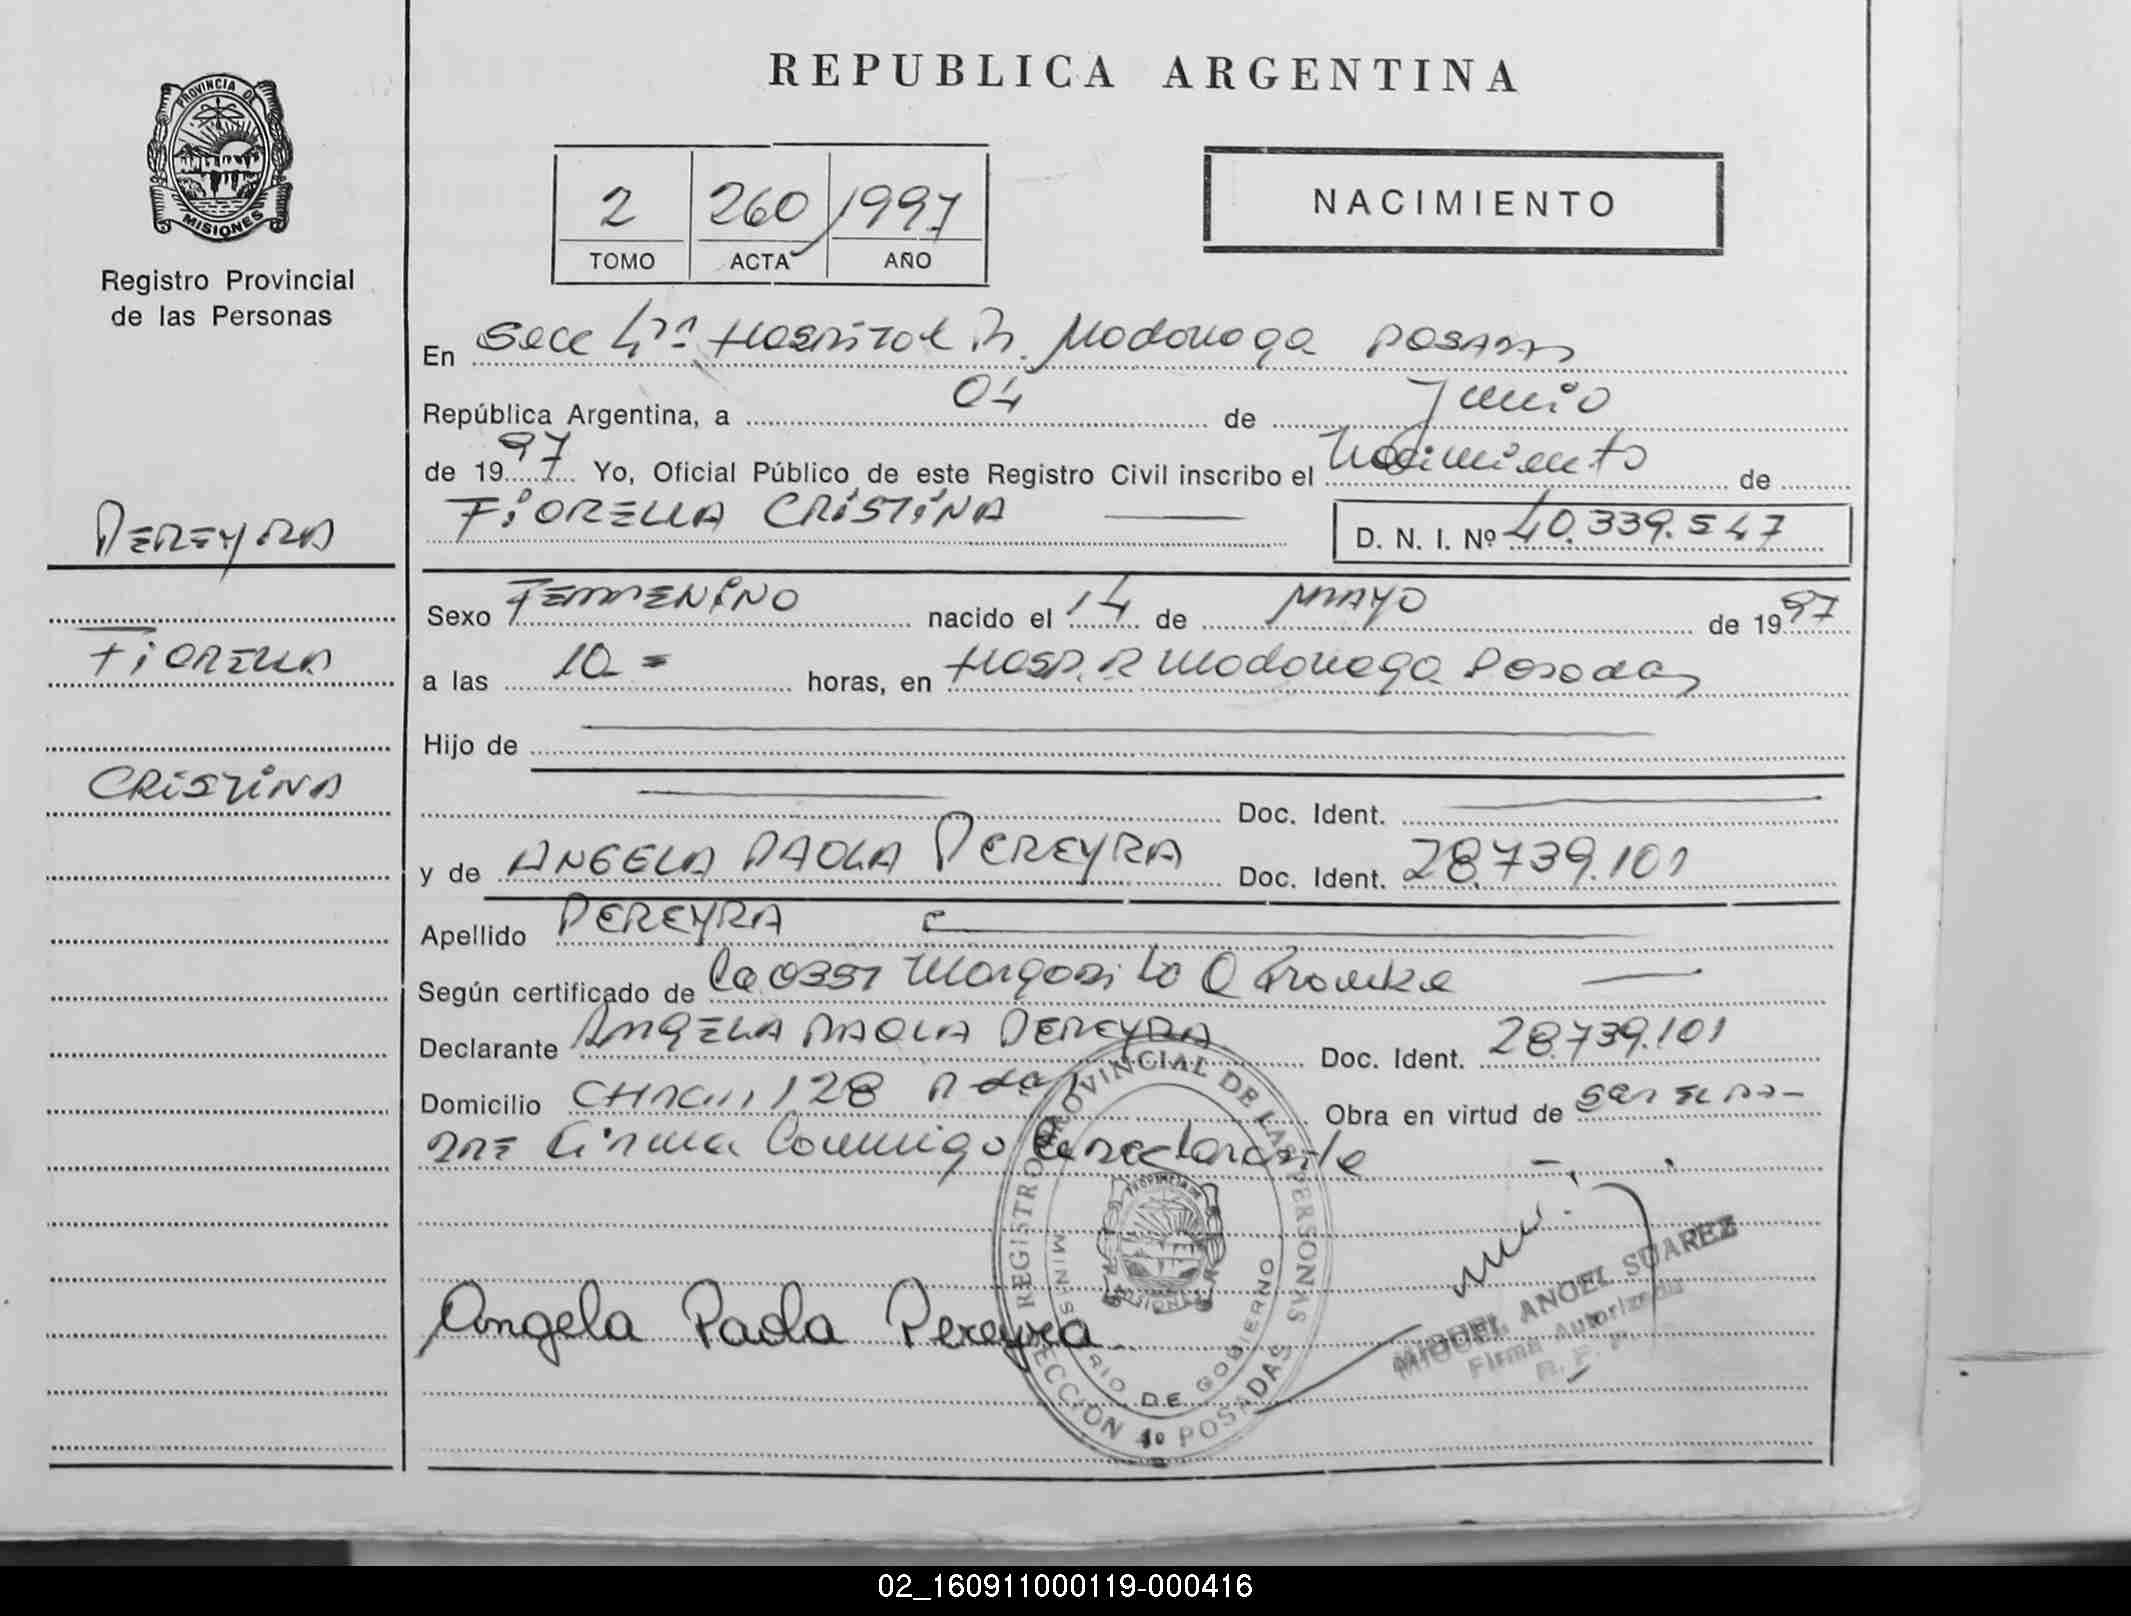 REPUBLICA ARGENTINA
PROVINCIA DE
MISIONES
Registro Provincial
de las Personas
2 260 1997
TOMO ACTA AÑO
NACIMIENTO
En Secc 4ta Hospital R. Madariaga Posadas
República Argentina, a 04 de Junio
de 1997 Yo, Oficial Público de este Registro Civil inscribo el Nacimiento de
FIORELLA CRISTINA D. N. I. Nº 40.339.547
PEREYRA
FIORELLA
CRISTINA
Sexo FEMENINO nacido el 14 de MAYO de 1997
a las 10 = horas, en Hosp. R Madariaga Posadas
Hijo de
Doc. Ident.
y de ANGELA PAOLA PEREYRA Doc. Ident. 28.739.101
Apellido PEREYRA
Según certificado de Margarita
Declarante ANGELA PAOLA PEREYRA Doc. Ident. 28.739.101
Domicilio 128 Pdas Obra en virtud de
Firma Conmigo declarante
Angela Paola Pereyra
REGISTRO PROVINCIAL DE LAS PERSONAS
SECCION 4º POSADAS
MINISTERIO DE GOBIERNO
MIGUEL ANGEL SUAREZ
Firma Autorizada
02_160911000119-000416